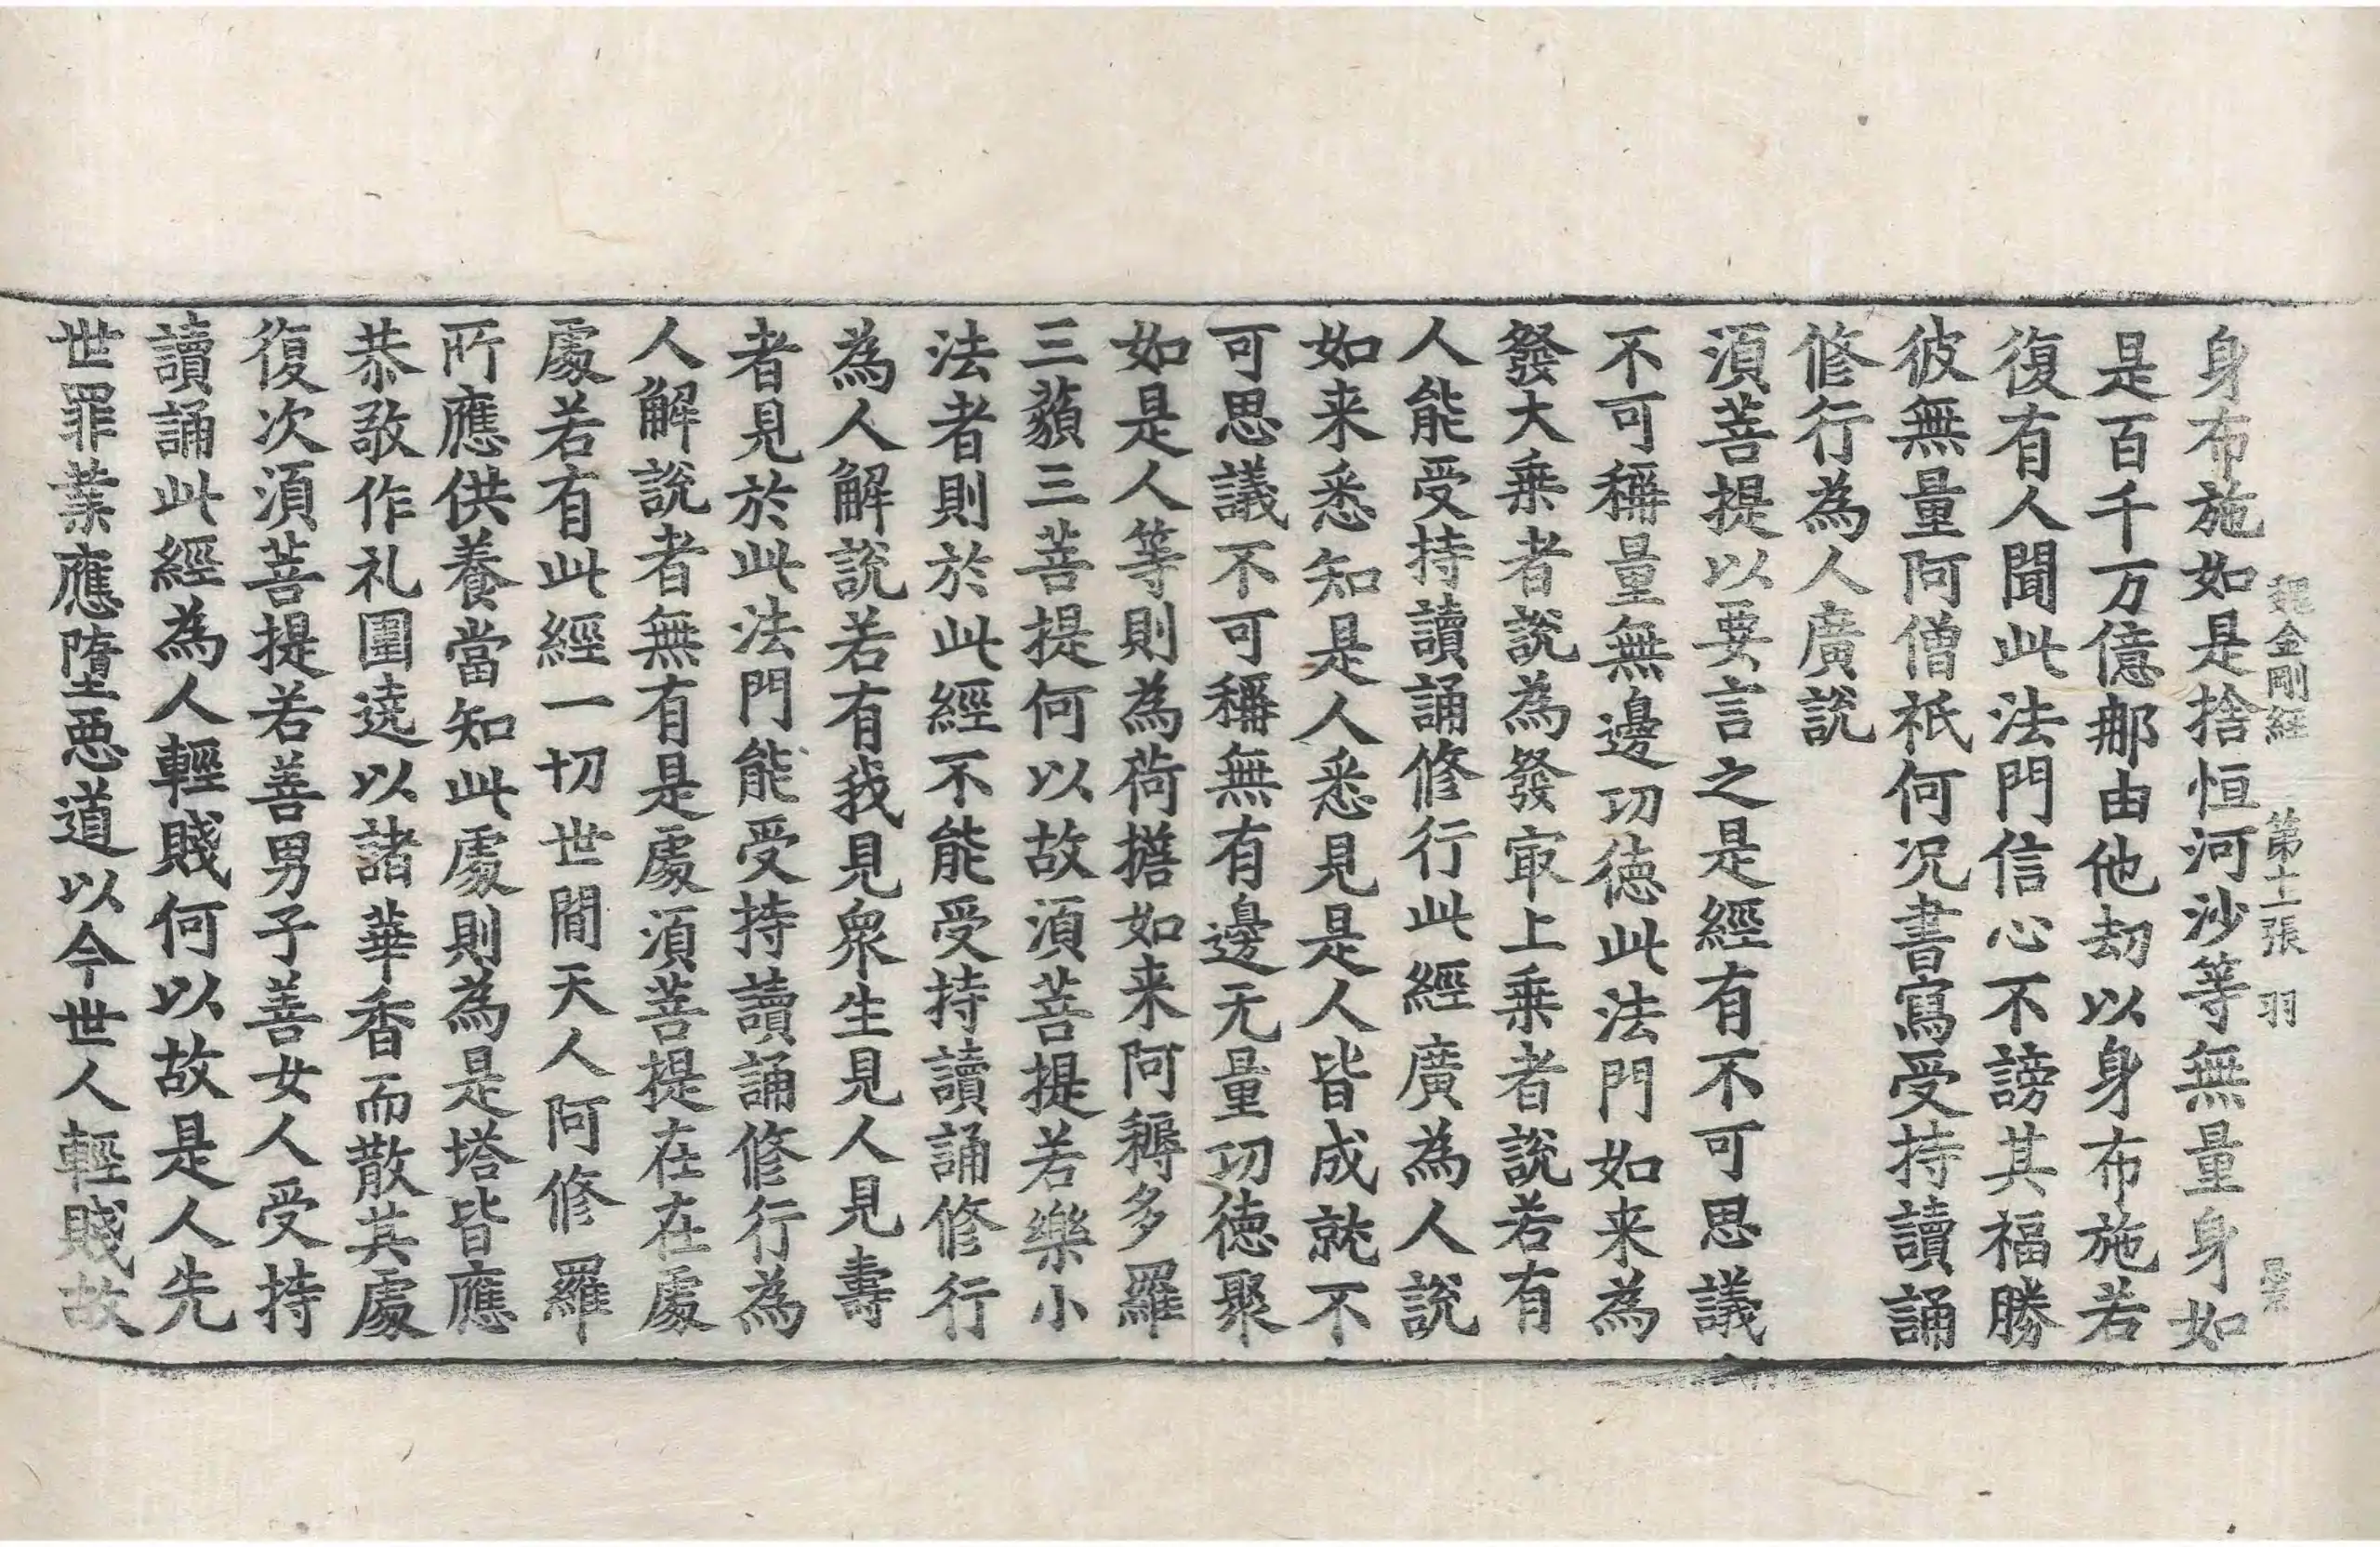 魏金剛經 第十二張 羽
身布施如是捨恒河沙等無量身如
是百千万億那由他劫以身布施若
復有人聞此法門信心不謗其福勝
彼無量阿僧祇何况書寫受持讀誦
修行為人廣說
湏菩提以要言之是經有不可思議
不可稱量無邊功徳此法門如来為
發大乗者說為發㝡上乗者說若有
人能受持讀誦修行此經廣為人說
如来悉知是人悉見是人皆成就不
可思議不可稱無有邊无量功徳聚
如是人等則為荷擔如来阿耨多羅
三藐三菩提何以故湏菩提若樂小
法者則於此經不能受持讀誦修行
為人解說若有我見衆生見人見壽
者見於此法門能受持讀誦修行為
人解說者無有是處湏菩提在在處
處若有此經一切世間天人阿修羅
所應供養當知此處則為是塔皆應
恭敬作礼圍遶以諸華香而散其處
復次湏菩提若善男子善女人受持
讀誦此經為人輕賤何以故是人先
世罪業應墮惡道以今世人輕賤故